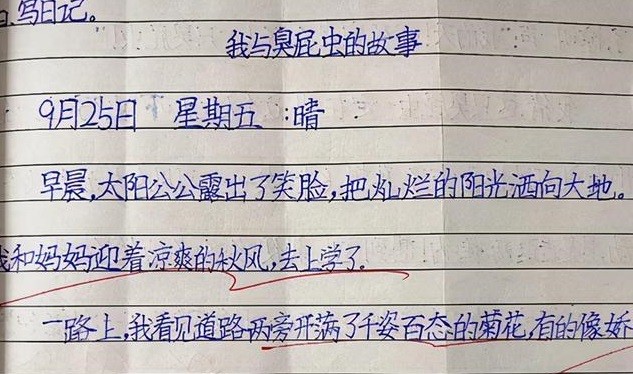 写日记。
我与臭屁虫的故事
9月25日 星期五 :晴
早晨,太阳公公露出了笑脸,把灿烂的阳光洒向大地。
我和妈妈迎着凉爽的秋风,去上学了.
一路上,我看见道路两旁开满了千姿百态的菊花,有的像娇